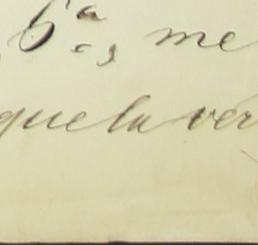 6.ª, me
que la ver